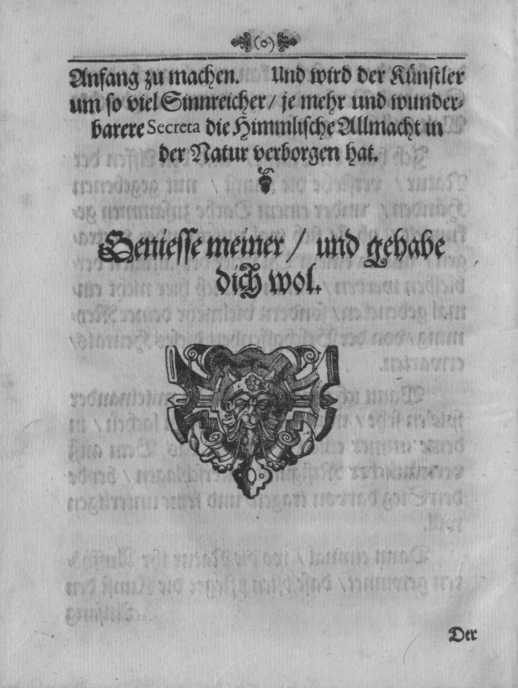 (o)
Anfang zu machen. Und wird der Künstler
um so viel Sinnreicher / je mehr und wunder-
barere Secreta die Himmlische Allmacht in
der Natur verborgen hat.
Geniesse meiner / und gehabe
dich wol.
Der